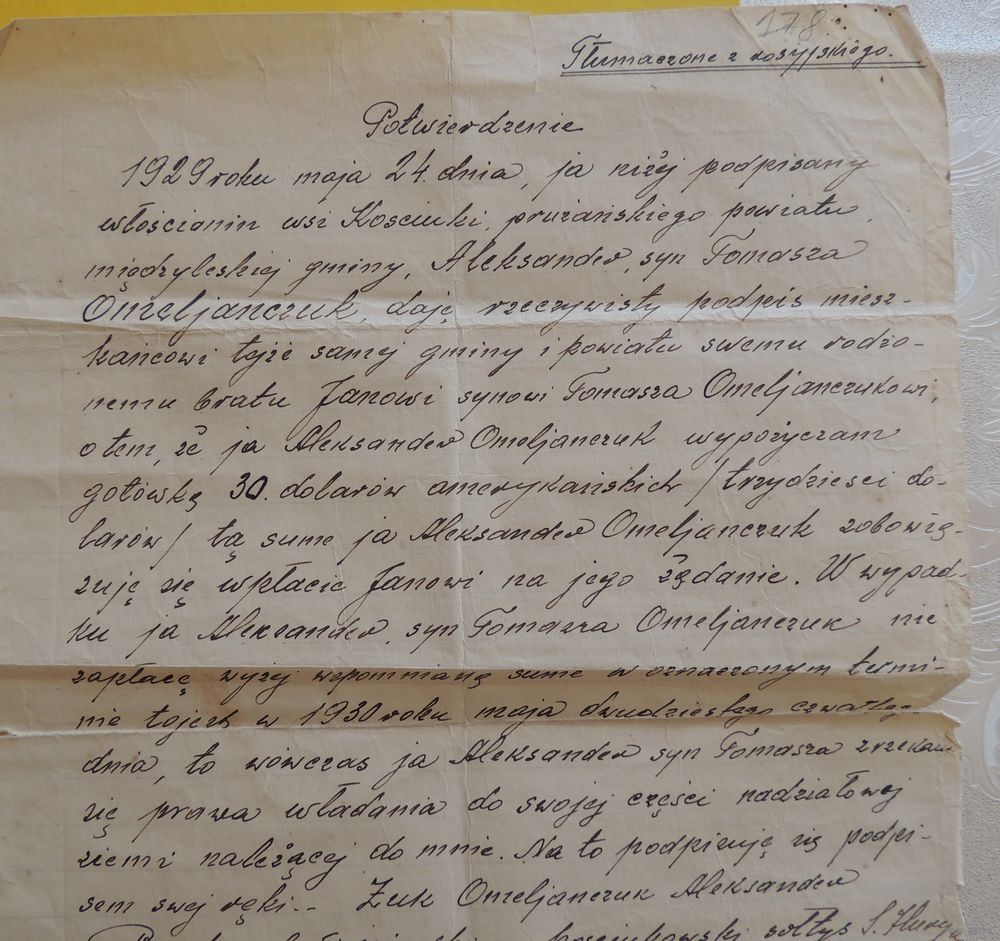 178.
Tłumaczone z rosyjskiego.
Potwierdzenie
1929 roku maja 24. dnia, ja niżej podpisany
włościanin wsi Kosciuki, prużańskiego powiatu,
międzyleskiej gminy, Aleksander, syn Tomasza
Omeljanczuk, daję rzeczywisty podpis miesz-
kańcowi tejże samej gminy i powiatu swemu rodzo-
nemu bratu Janowi synowi Tomasza Omeljanczukowi,
o tem, że ja Aleksander Omeljanczuk wypożyczam
gotówką 30. dolarów amerykańskich / trzydziesci do-
larów / tą sume ja Aleksander Omeljanczuk zobowią-
zuję się wpłacic Janowi na jego żądanie. W wypad-
ku ja Aleksander, syn Tomasza Omeljanczuk nie
zapłacę wyżej wspomnianą sume w oznaczonym termi-
nie tojest w 1930 roku maja dwudziestego czwartego
dnia, to wówczas ja Aleksander syn Tomasza zrzekam
się prawa władania do swojej części nadziałowej
ziemi należącej do mnie. Na to podpisuję się podpi-
sem swej ręki.- Żuk Omeljanczuk Aleksander
sołtys S.